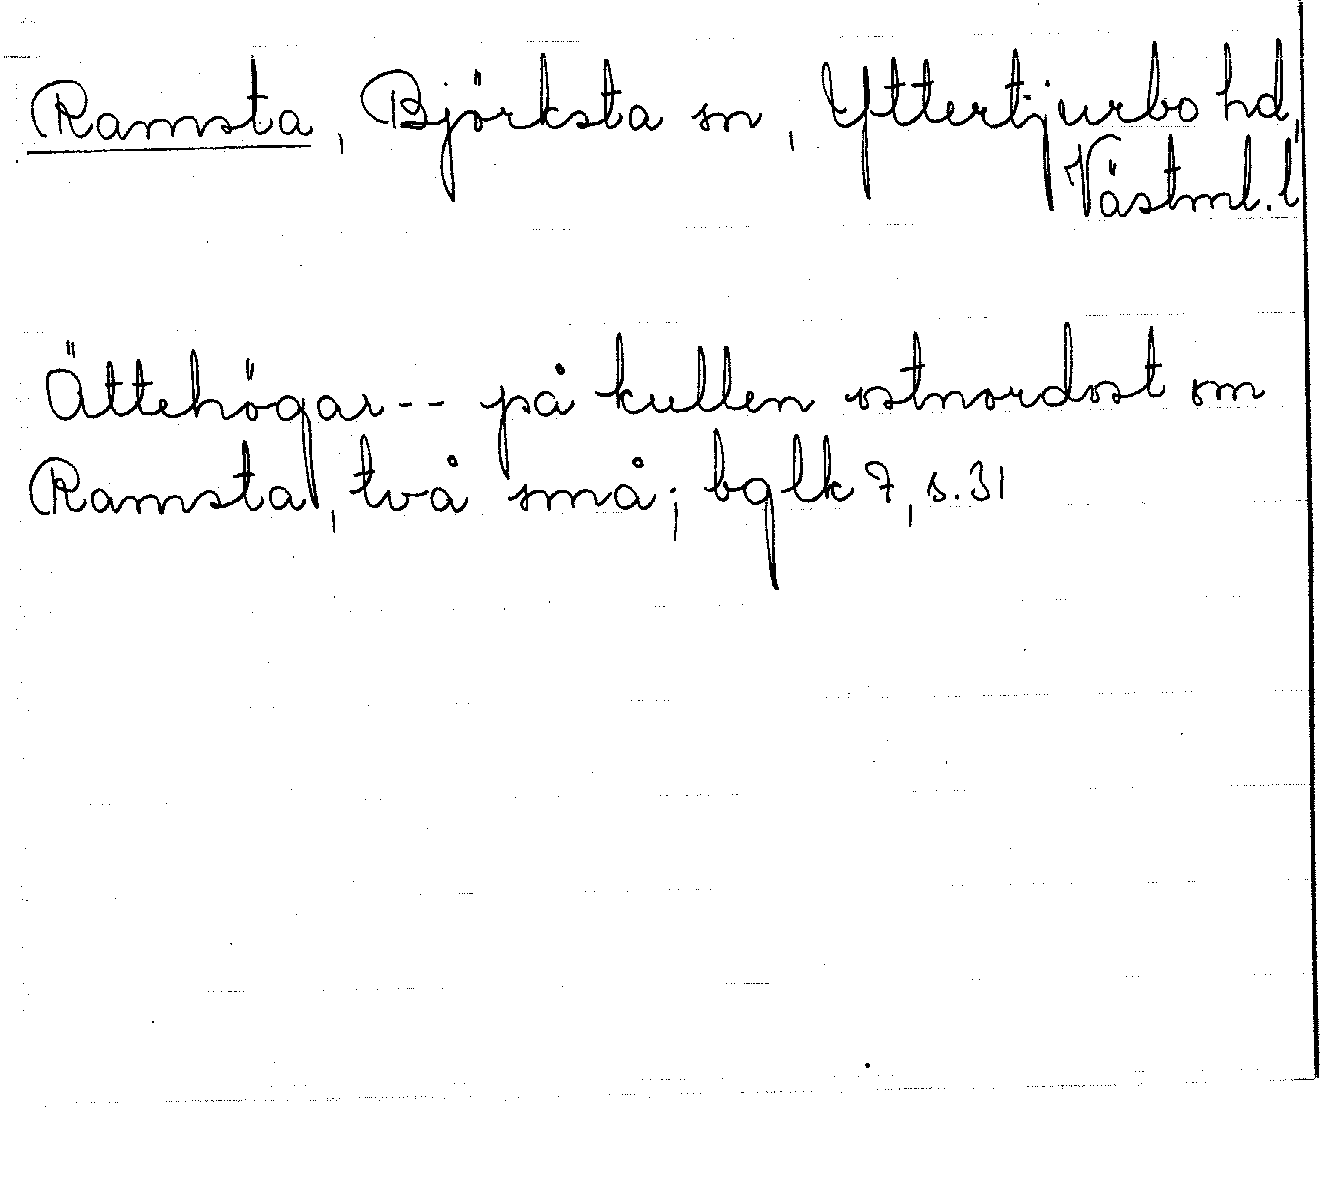 Ramsta, Björksta sn, Yttertjurbo hd,
Västml. l
Ättehögar -- på kullen ostnordost om
Ramsta, två små; bglk 7, s. 31